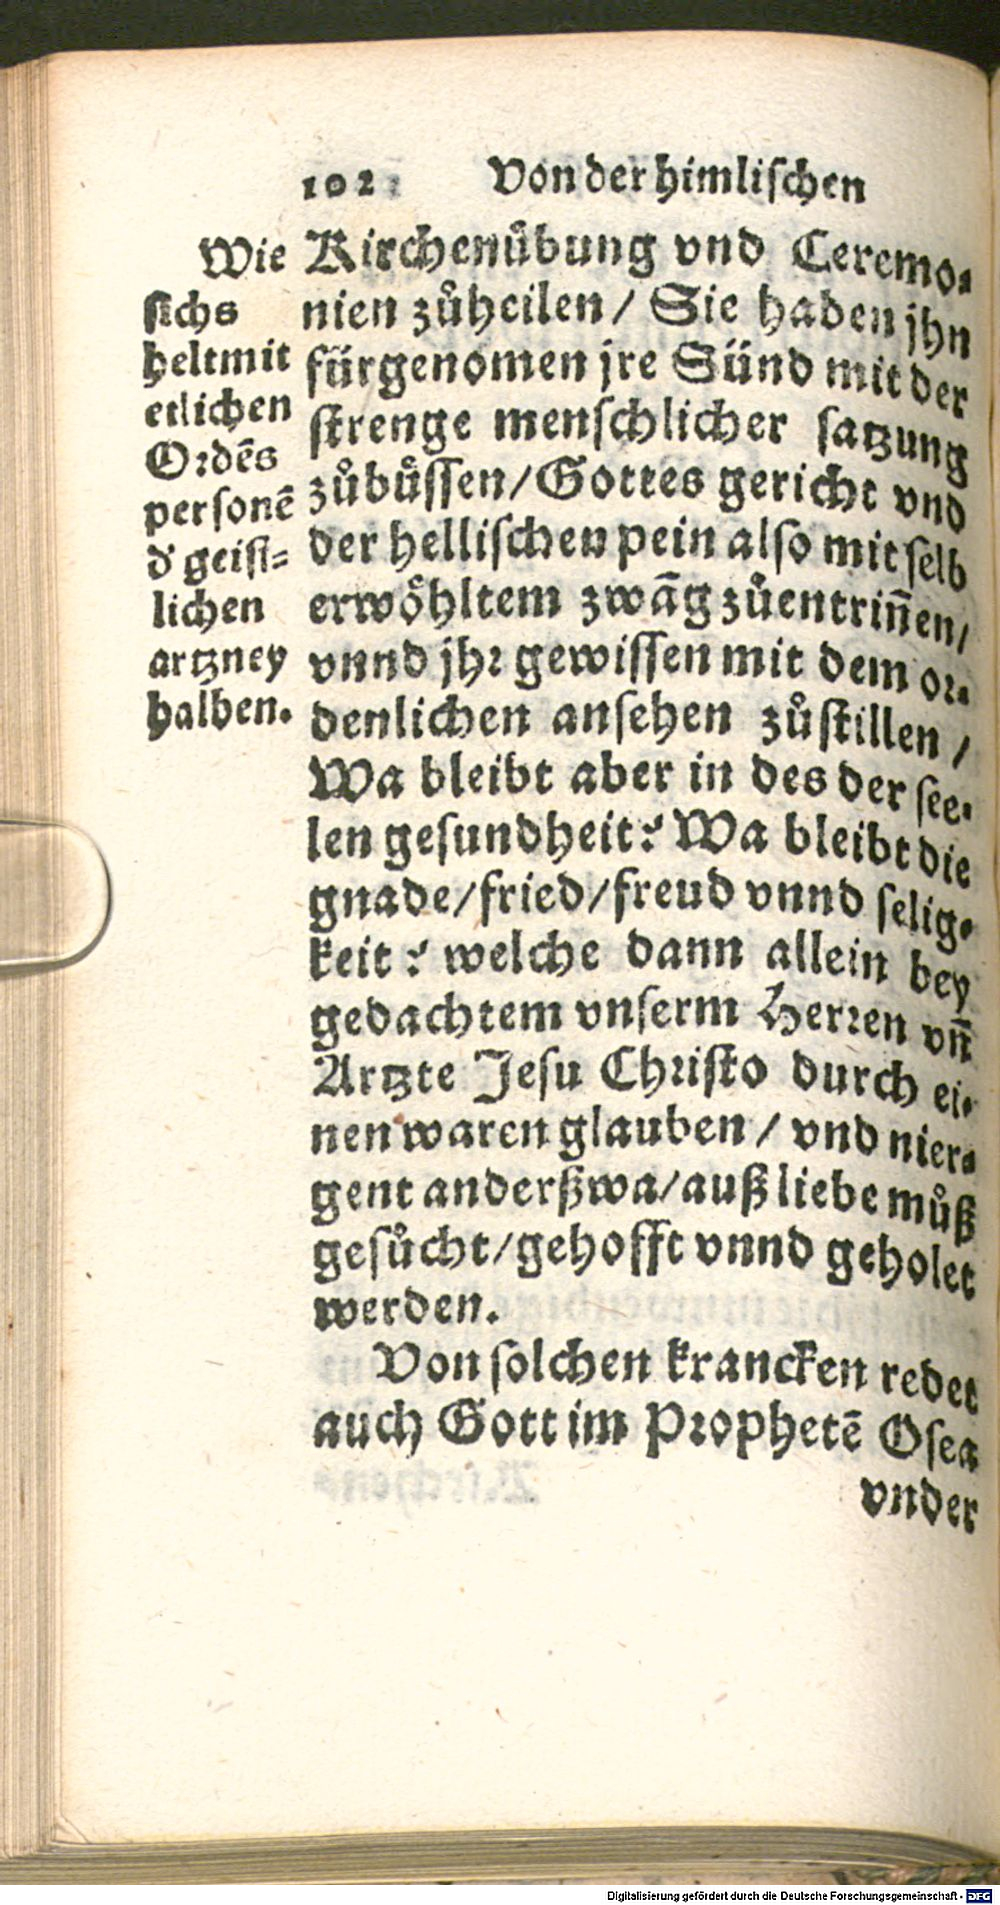 102 Von der himlischen
Wie
sichs
heltmit
etlichen
Ordēs
personē
d' geist=
lichen
artzney
halben.
Kirchenůbung vnd Ceremo-
nien zůheilen/ Sie haden jhn
fürgenomen jre Sünd mit der
strenge menschlicher satzung
zůbůssen/Gottes gericht vnd
der hellischen pein also mit selb
erwöhltem zwāg zůentriñen/
vnnd jhr gewissen mit dem or-
denlichen ansehen zůstillen /
Wa bleibt aber in des der see-
len gesundheit? Wa bleibt die
gnade/fried/freud vnnd selig-
keit? welche dann allein bey
gedachtem vnserm Herren vñ
Artzte Jesu Christo durch ei-
nen waren glauben / vnd nier-
gent anderßwa/auß liebe můß
gesůcht/gehofft vnnd geholet
werden.
Von solchen krancken redet
auch Gott im Prophetē Osea
vnder
Digitalisierung gefördert durch die Deutsche Forschungsgemeinschaft - DFG